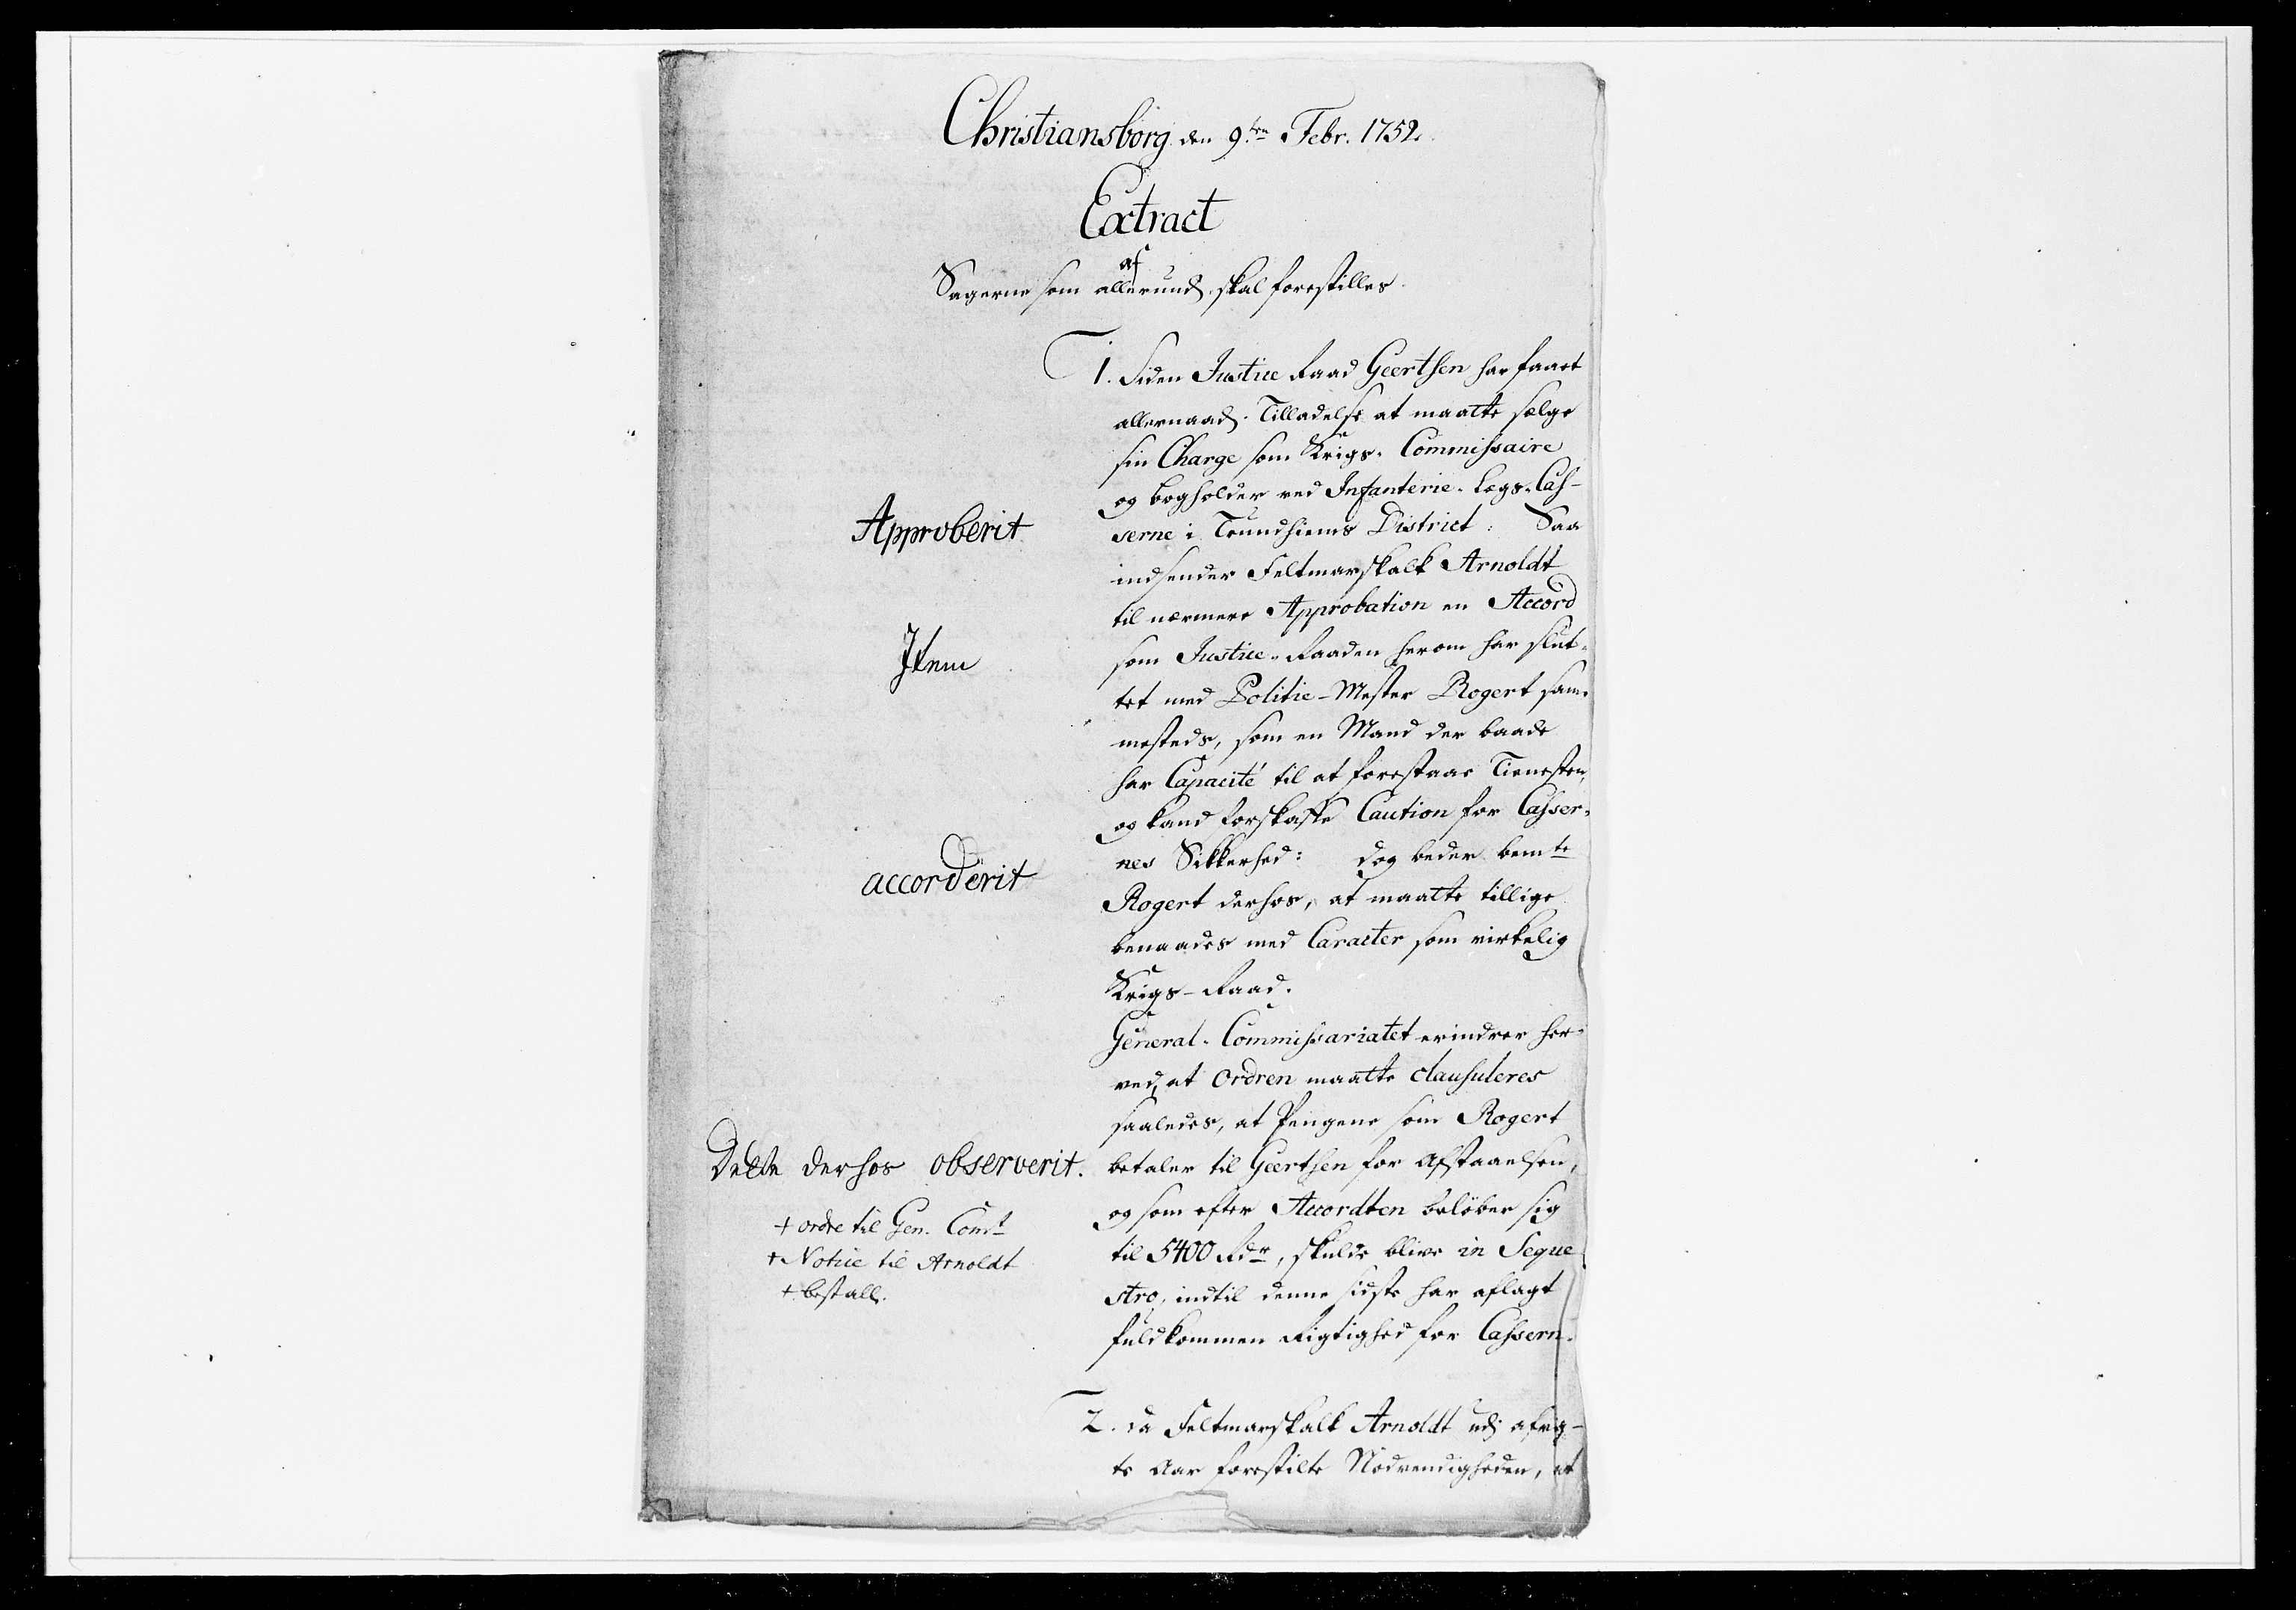 Christiansborg den 9.de Febr. 1752.
Extract
af
Sagerne som allerund. skal forestilles.
1. Siden Justice Raad Geertsen har faaet
allernaad. Tilladelse at maatte sælge
sin Charge som Krigs-Commissaire
og bogholder ved Infanterie-Legs-Cas-
Approberit
serne i Trundhiems District: Saa
indsender Feltmarskalk Arnoldt
til nærmere Approbation en Accord
Item
som Justice-Raaden herom har slut-
tet med Politie-Mester Rogert sam-
mesteds, som en Mand der baade
har Capacité til at forestaae Tienesten,
og kand forskaffe Caution for Casser-
nes Sikkerhed: dog beder bemte
accorderit
Rogert derhos, at maatte tillige
benaades med Caracter som virkelig
Krigs-Raad.
General-Commissariatet erindrer her-
ved, at ordren maatte clausuleres
saaledes, at Pengene som Rogert
Dette derhos observerit.
betaler til Geertsen for Afstaaelsen,
og som efter Accordten beløber sig
+ ordre til Gen. Comt
til 5400 Rdr, skulde blive in Seque
+ Notice til Arnoldt
stro, indtil denne sidste har aflagt
+ bestall.
fuldkommen Rigtighed for Cassern.
2. Da Feltmarskalk Arnoldt udj afvig-
te Aar forestilte Nødvendigheden, at